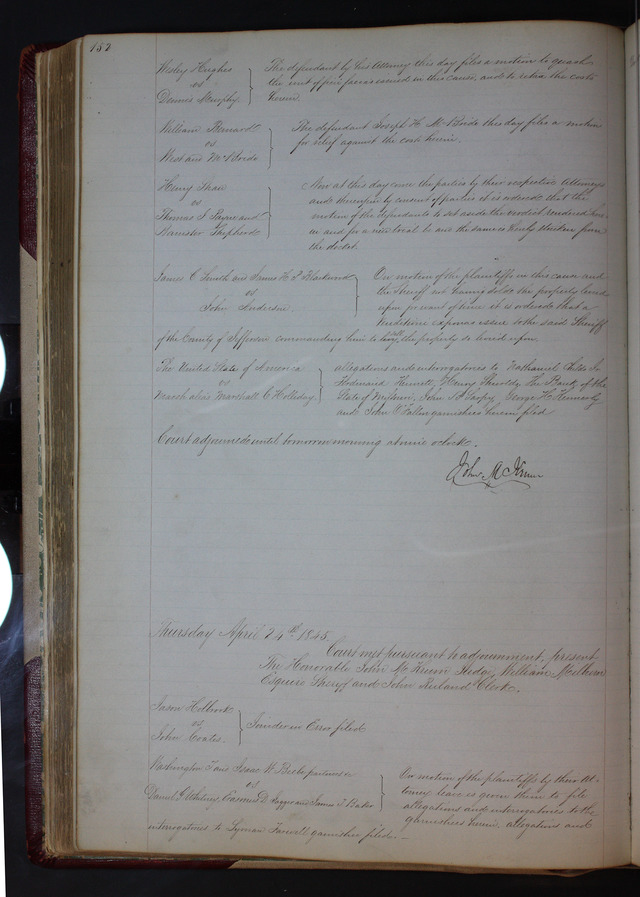 182
Wesley Hughes
vs
Dennis Murphy
The defendant by his Attorney this day files a motion to quash
the writ of fieri facias issued in this cause, and to retax the costs
herein.
William Bernard
vs
West and McBride
The defendant Joseph H. McBride this day files a motion
for relief against the costs herein.
Henry Shaw
vs
Thomas J. Payne and
Bannister Shepherd
Now at this day come the parties by their respective Attorneys
and thereupon by consent of parties it is ordered that the
motion of the defendants to set aside the verdict rendered here-
in and for a new trial be and the same is hereby stricken from
the docket.
James C Smith and James H
vs
John Anderson
On motion of the plaintiffs in this cause and
the Sheriff not having sold the property levied
upon for want of time it is ordered that a
Venditioni exponas issue to the said Sheriff
of the County of Jefferson commanding him to the property so levied upon.
The United State of America
vs
Marsh alias Marshall C Holliday
allegations and interrogatories to Nathaniel Childs Jr
Kennett, Henry The Bank of the
State of Missouri, John George H Kennerly
and John garnishees herein filed
Court adjourned until tomorrow morning at nine o'clock.
John M Krum
Thursday April 24th 1845.
Court met pursuant to adjournment, present
The Honorable John M. Krum Judge, William Milburn
Esquire Sheriff and John Ruland Clerk.
Jason
vs
John Coates.
Joinder in Error filed
Washington and Isaac W.
vs
Daniel G Whitney, Erasmus D. and James T Baker
On motion of the plaintiffs by their At-
torney leave is given them to file
allegations and interrogatories to the
garnishees herein. allegations and
interrogatories to Lyman Farwell garnishee filed.